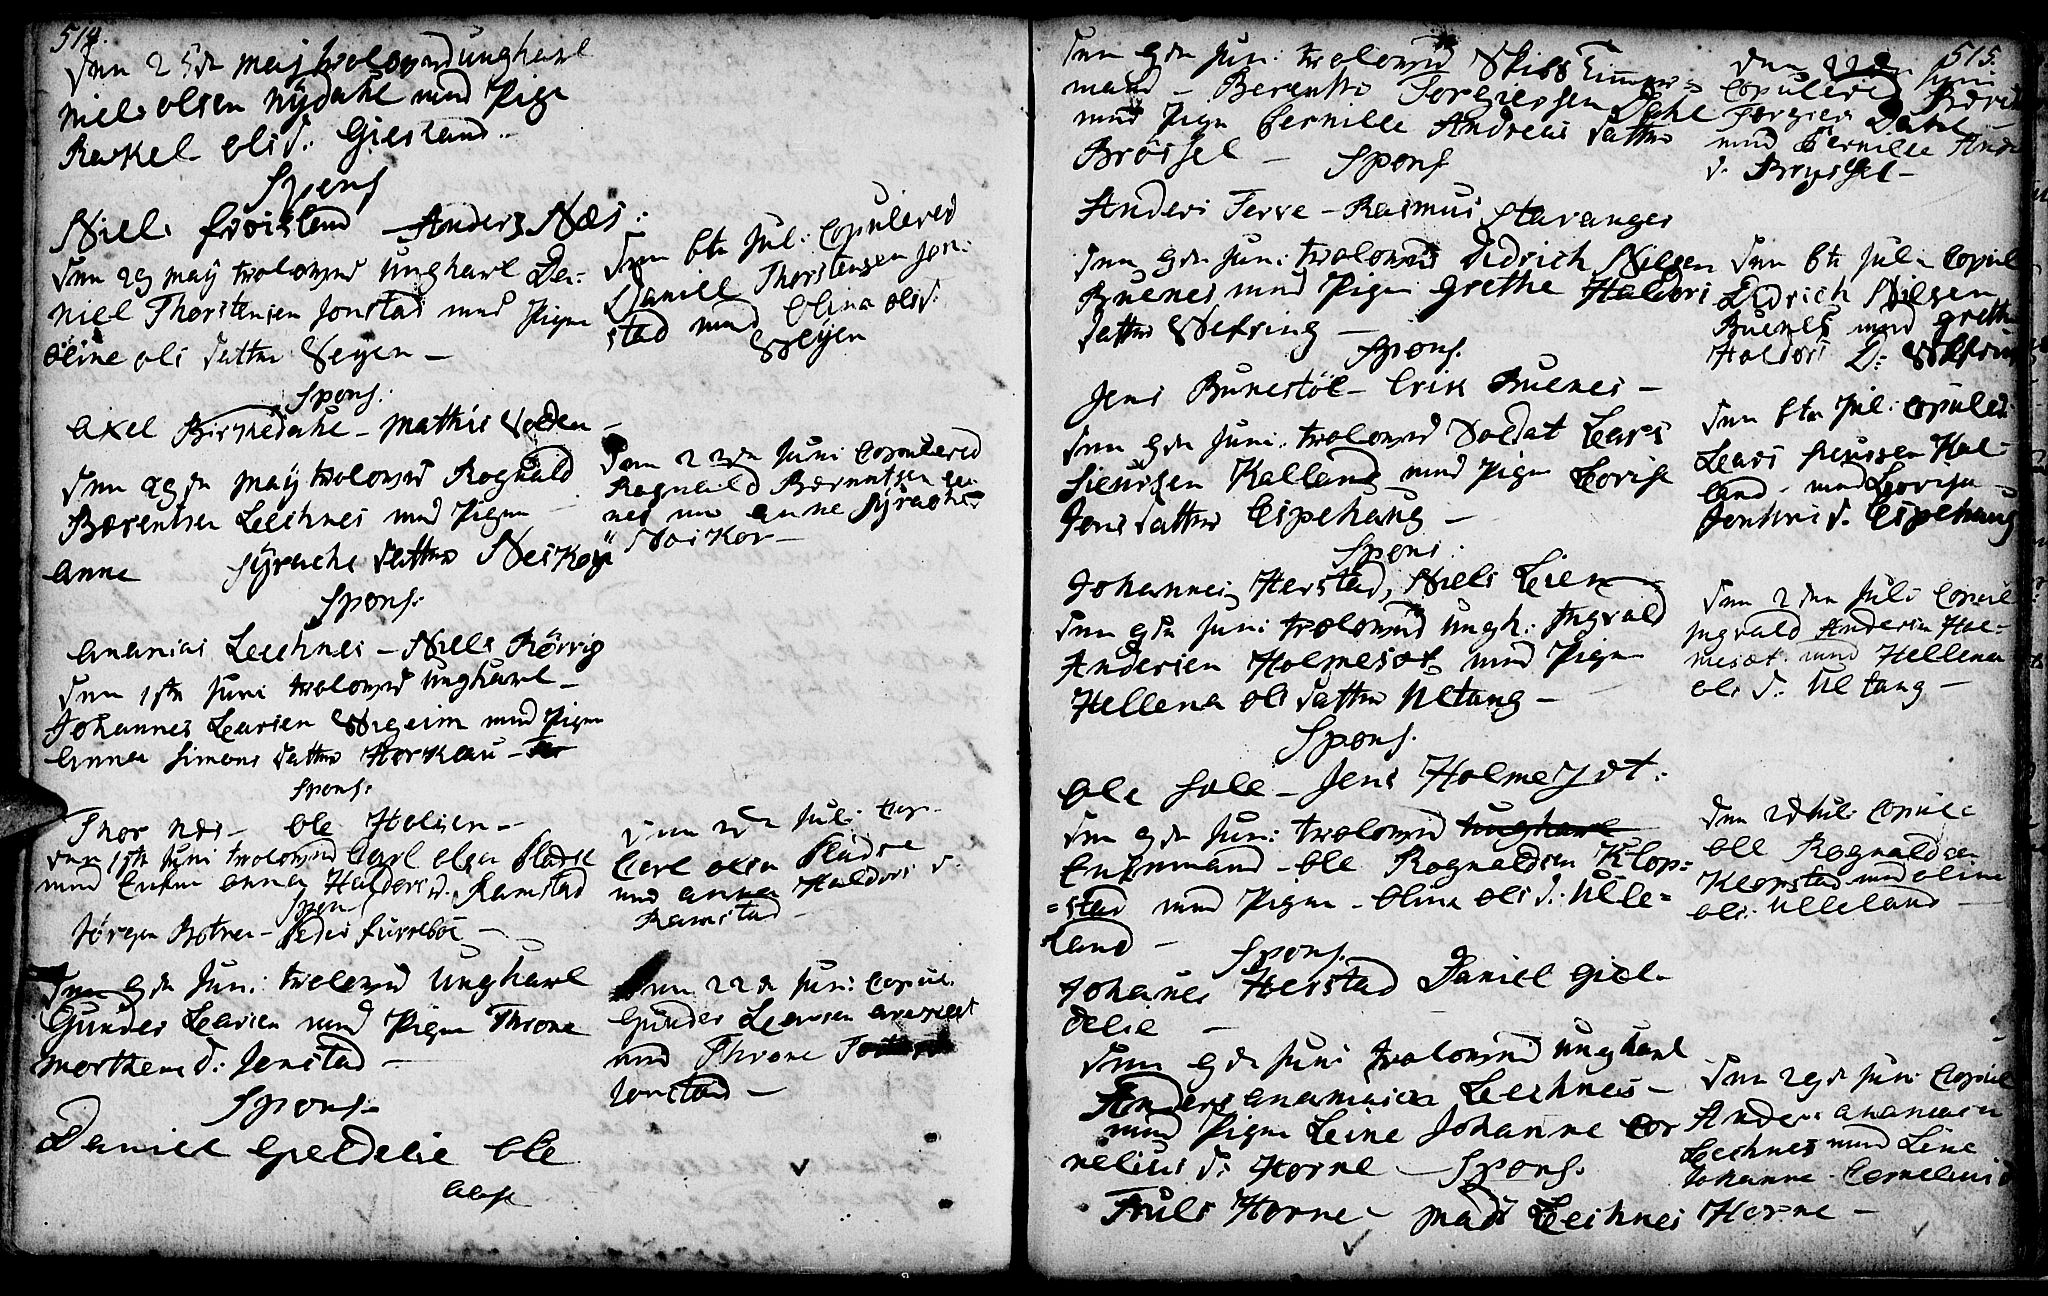 514.
Den 25de maj troloved ungkarl
Niels olsen Nÿdahl med Pige
Rackel ols d. Gieeland
Spons
Niels Froistend Anders Næs.
Den 29 maÿ troloved ungkarl Da-
niel Thorstensen Jonstad med Pigen
oline ols datter Vegen
Spons.
axel Birkedahl - Mathis Volden
Den 29de maÿ troloved Rognald
Bærentsen Leehnes med Pigen
anne Sÿrachs datter
Spons.
ananias Leehnes - Niels Rörvig
Den 1ste Juni troloved ungkarl
Johannes Larsen med Pigen
anna Simons datter
Spons.
Thor Næs - ole
Den 1ste Juni troloved Carl olsen
med Enken anna Haldors d. Ramstad
Spons
Jörgen Botnen - Peder
Den 9de Juni troloved ungkarl
Gunder Larsen med Pigen Throne
Morthens d. Jonstad
Spons.
Daniel Gieldelie ole
Den 6te Jul. Copulered
Daniel Thorstensen Jon-
stad med Olina ols d.
Vegen
Den 22de Juni Copulered
Rognald Bærentsen Lee-
nes med anne Sÿrachs
Den 2de Juli Cop.
Carl olsen
med anna Haldors d.
Ramstad
Den 22de Juni Copul.
Gunder Larsen
med Throne
Jonstad
515.
Den 9de Juni troloved Skibs Timmer=
mand - Berentho Torgiersen Dahl
med Pigen Pernille Andreas datter
Brössel
Spons
Anders Terre - Rasmus Stavanger
Den 9de Juni troloved Didrich Nilsen
Buenes med Pigen Grethe Haldors
datter Vefring
Spons.
Jens Bunestöl - Erik Buenes
Den 9de Juni troloved Soldat Lars
Siursen Kalland med Pigen Lovise
Jens datter Espehaug
Spons.
Johannes Herstad, Niels Leen
Den 9de Juni troloved ungk. Ingvald
Andersen Holmesæt med Pigen
Hellena ols datter Ultang
Spons.
ole Sole - Jens Holmesæt.
Den 9de Juni troloved ungkarl
Enkemand - ole Rognaldsen Klop-
=stad med Pigen - Olina ols d. Ulle=
land
Spons.
Johanes Herstad Daniel Giel-
delie
Den 9de Juni troloved ungkarl
Anders ananiasen Leehnes
med Pigen Leine Johanne Cor
nelius d. Horne Spons.
Truls Horne - Mads Leehnes
Den 22de Juni
Copulered
Torgier Dahl
med Pernille And.
d. Brössel
Den 6te Juli Copul
Didrich Nilsen
Buenes med Grethe
Haldors D. Vefring
Den 6te Jul. Copuled.
Lars Siursen Kal-
land - med Lovise
d. Espehaug
Den 2den Juli Copul
Ingvald Andersen Hol-
mesæt med Hellena
ols d. Ultang
Den 2d Jul. Copul.
ole Rognaldsen
Klopstad med oline
ols. Ulleland
Den 29de Juni Copul
Anders ananiasen
Leehnes med Line
Johanne - Cornelius d
Horne